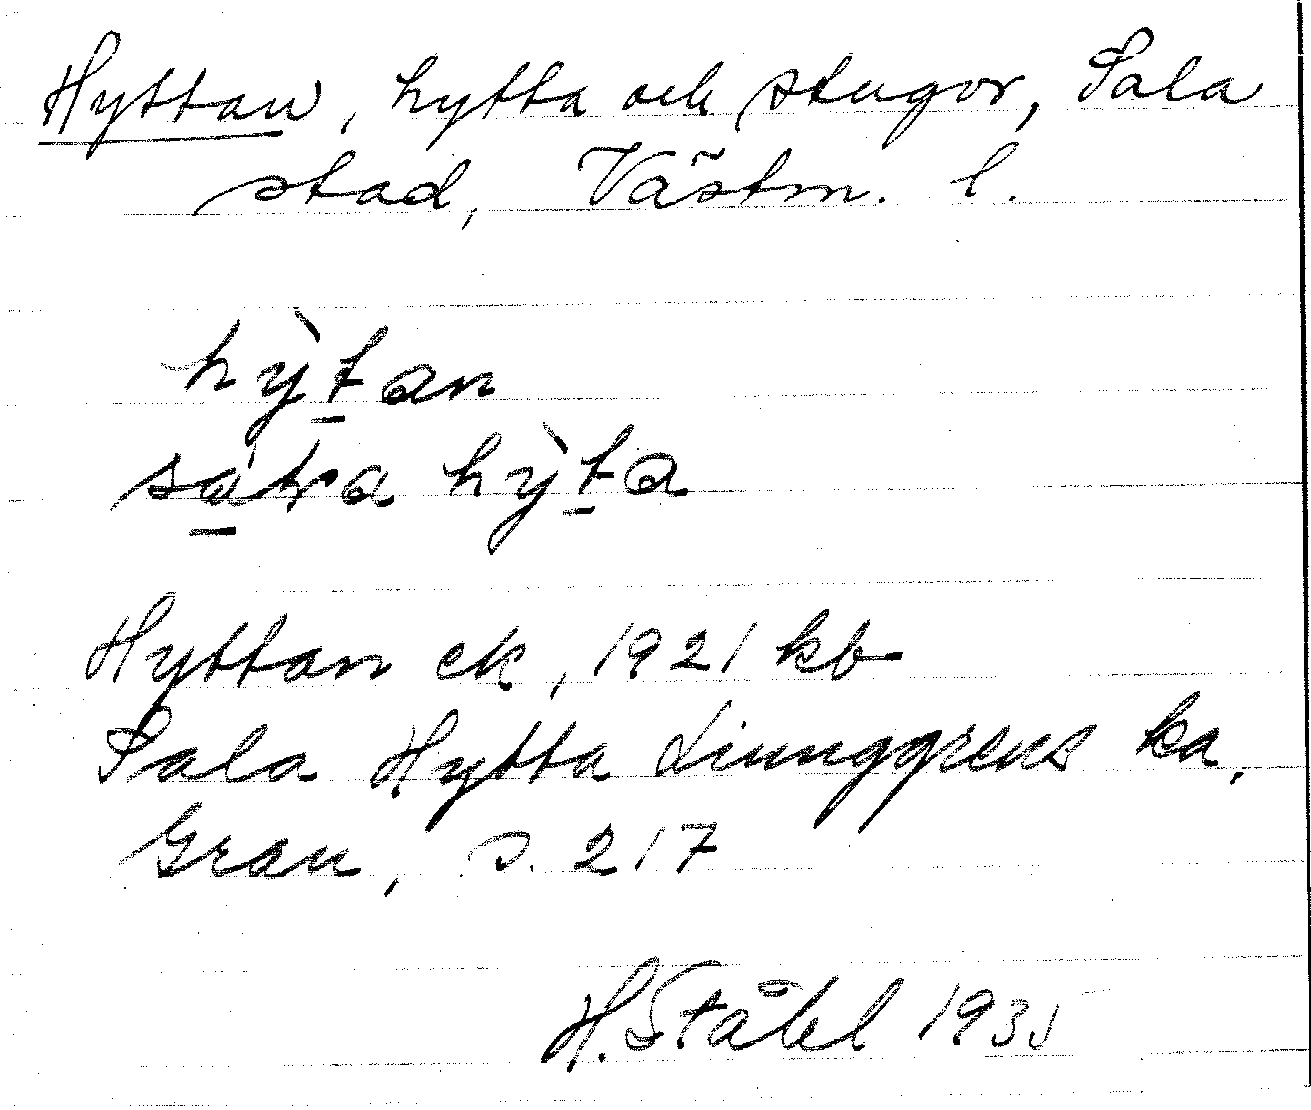 Hyttan, hytta och stugor, Sala
stad, Västm. l.
hỳtan
hỳta
Hyttan ek, 1921 kb
Sala Hytta Ljunggrens ka,
Grau, s. 217
H. Ståhl 1935